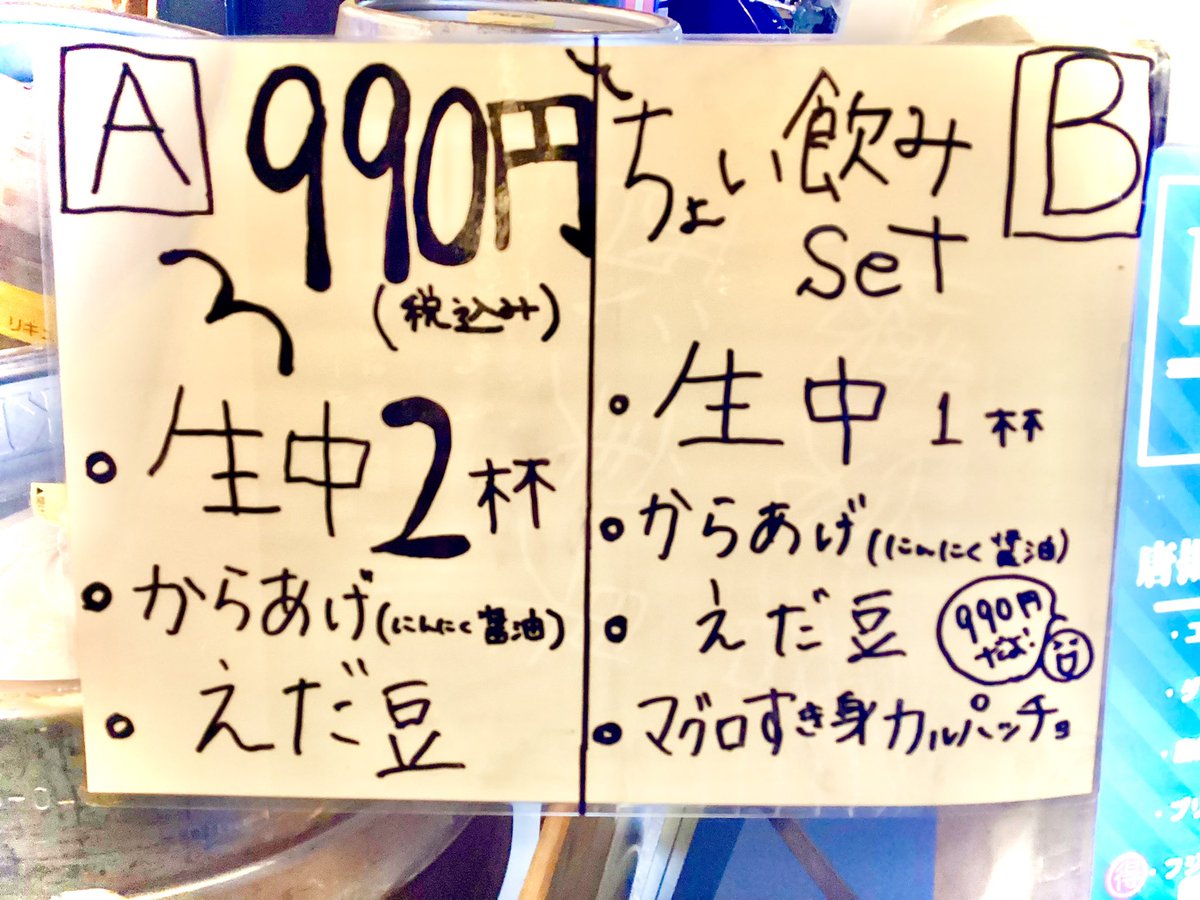 A
990円
(税込み)
・生中2杯
・からあげ(にんにく醤油)
・えだ豆
B
ちょい飲み
set
・生中 1杯
・からあげ(にんにく醤油)
・えだ豆
990円
だよ!
・マグロすき身カルパッチョ
リキ